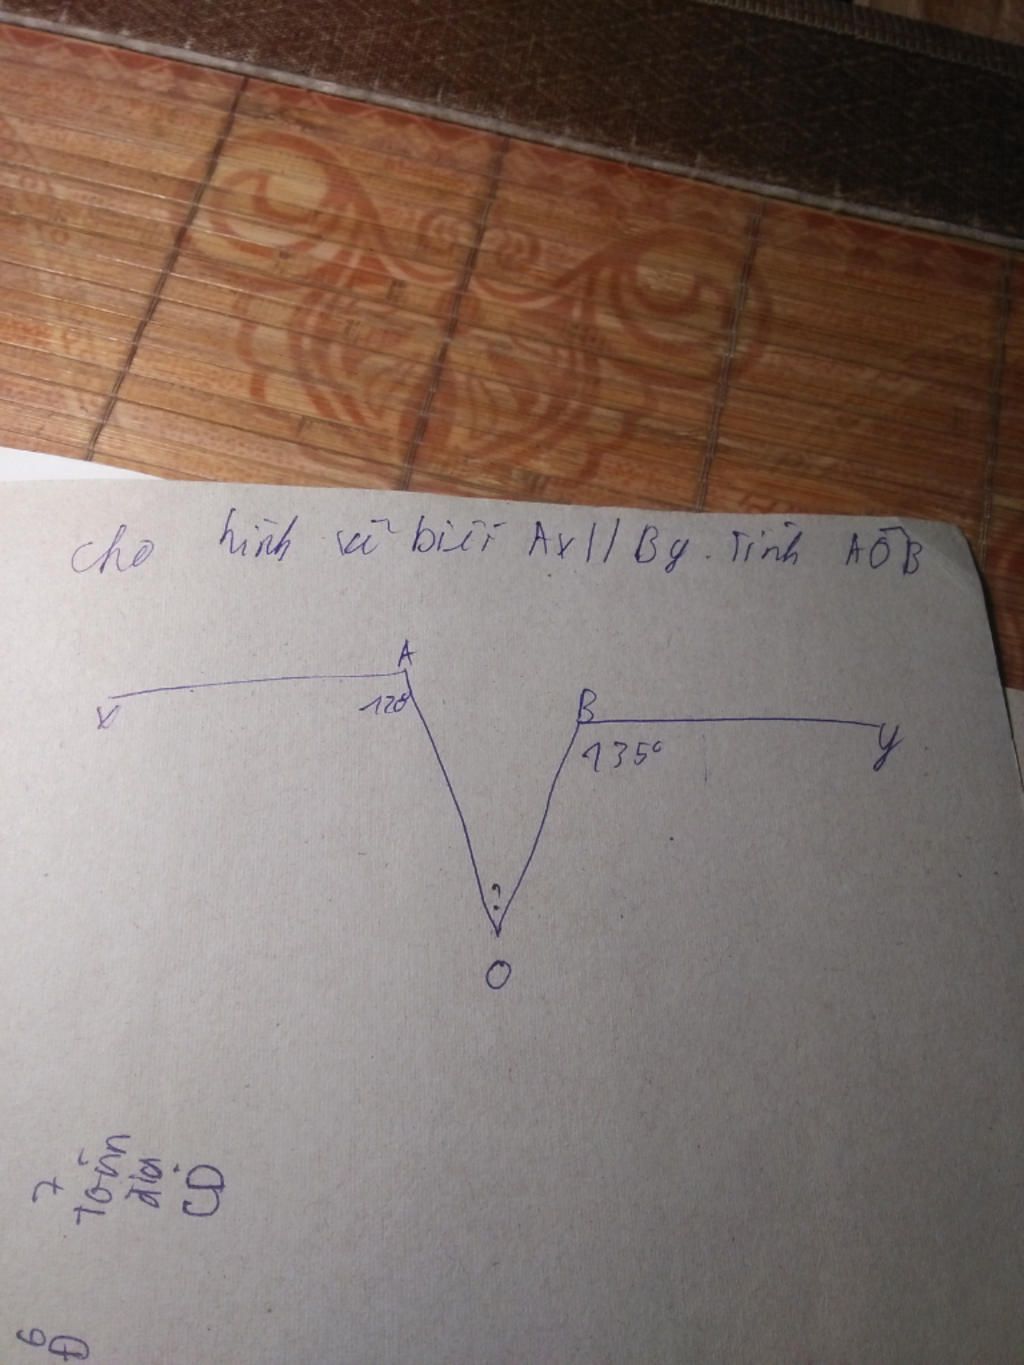 cho hình vẽ biết Ax // By. Tính AÔB
A
120°
x
B
135°
y
?
O
7
Toán
đại
CD
6
Đ